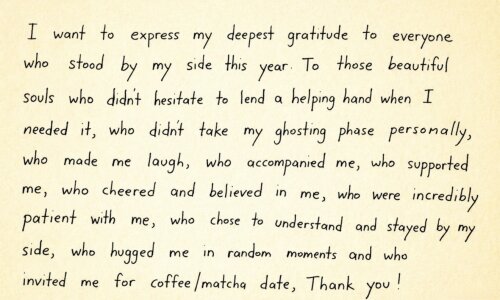 I want to express my deepest gratitude to everyone
who stood by my side this year. To those beautiful
souls who didn't hesitate to lend a helping hand when I
needed it, who didn't take my ghosting phase personally,
who made me laugh, who accompanied me, who supported
me, who cheered and believed in me, who were incredibly
patient with me, who chose to understand and stayed by my
side, who hugged me in random moments and who
invited me for coffee/matcha date, Thank you!